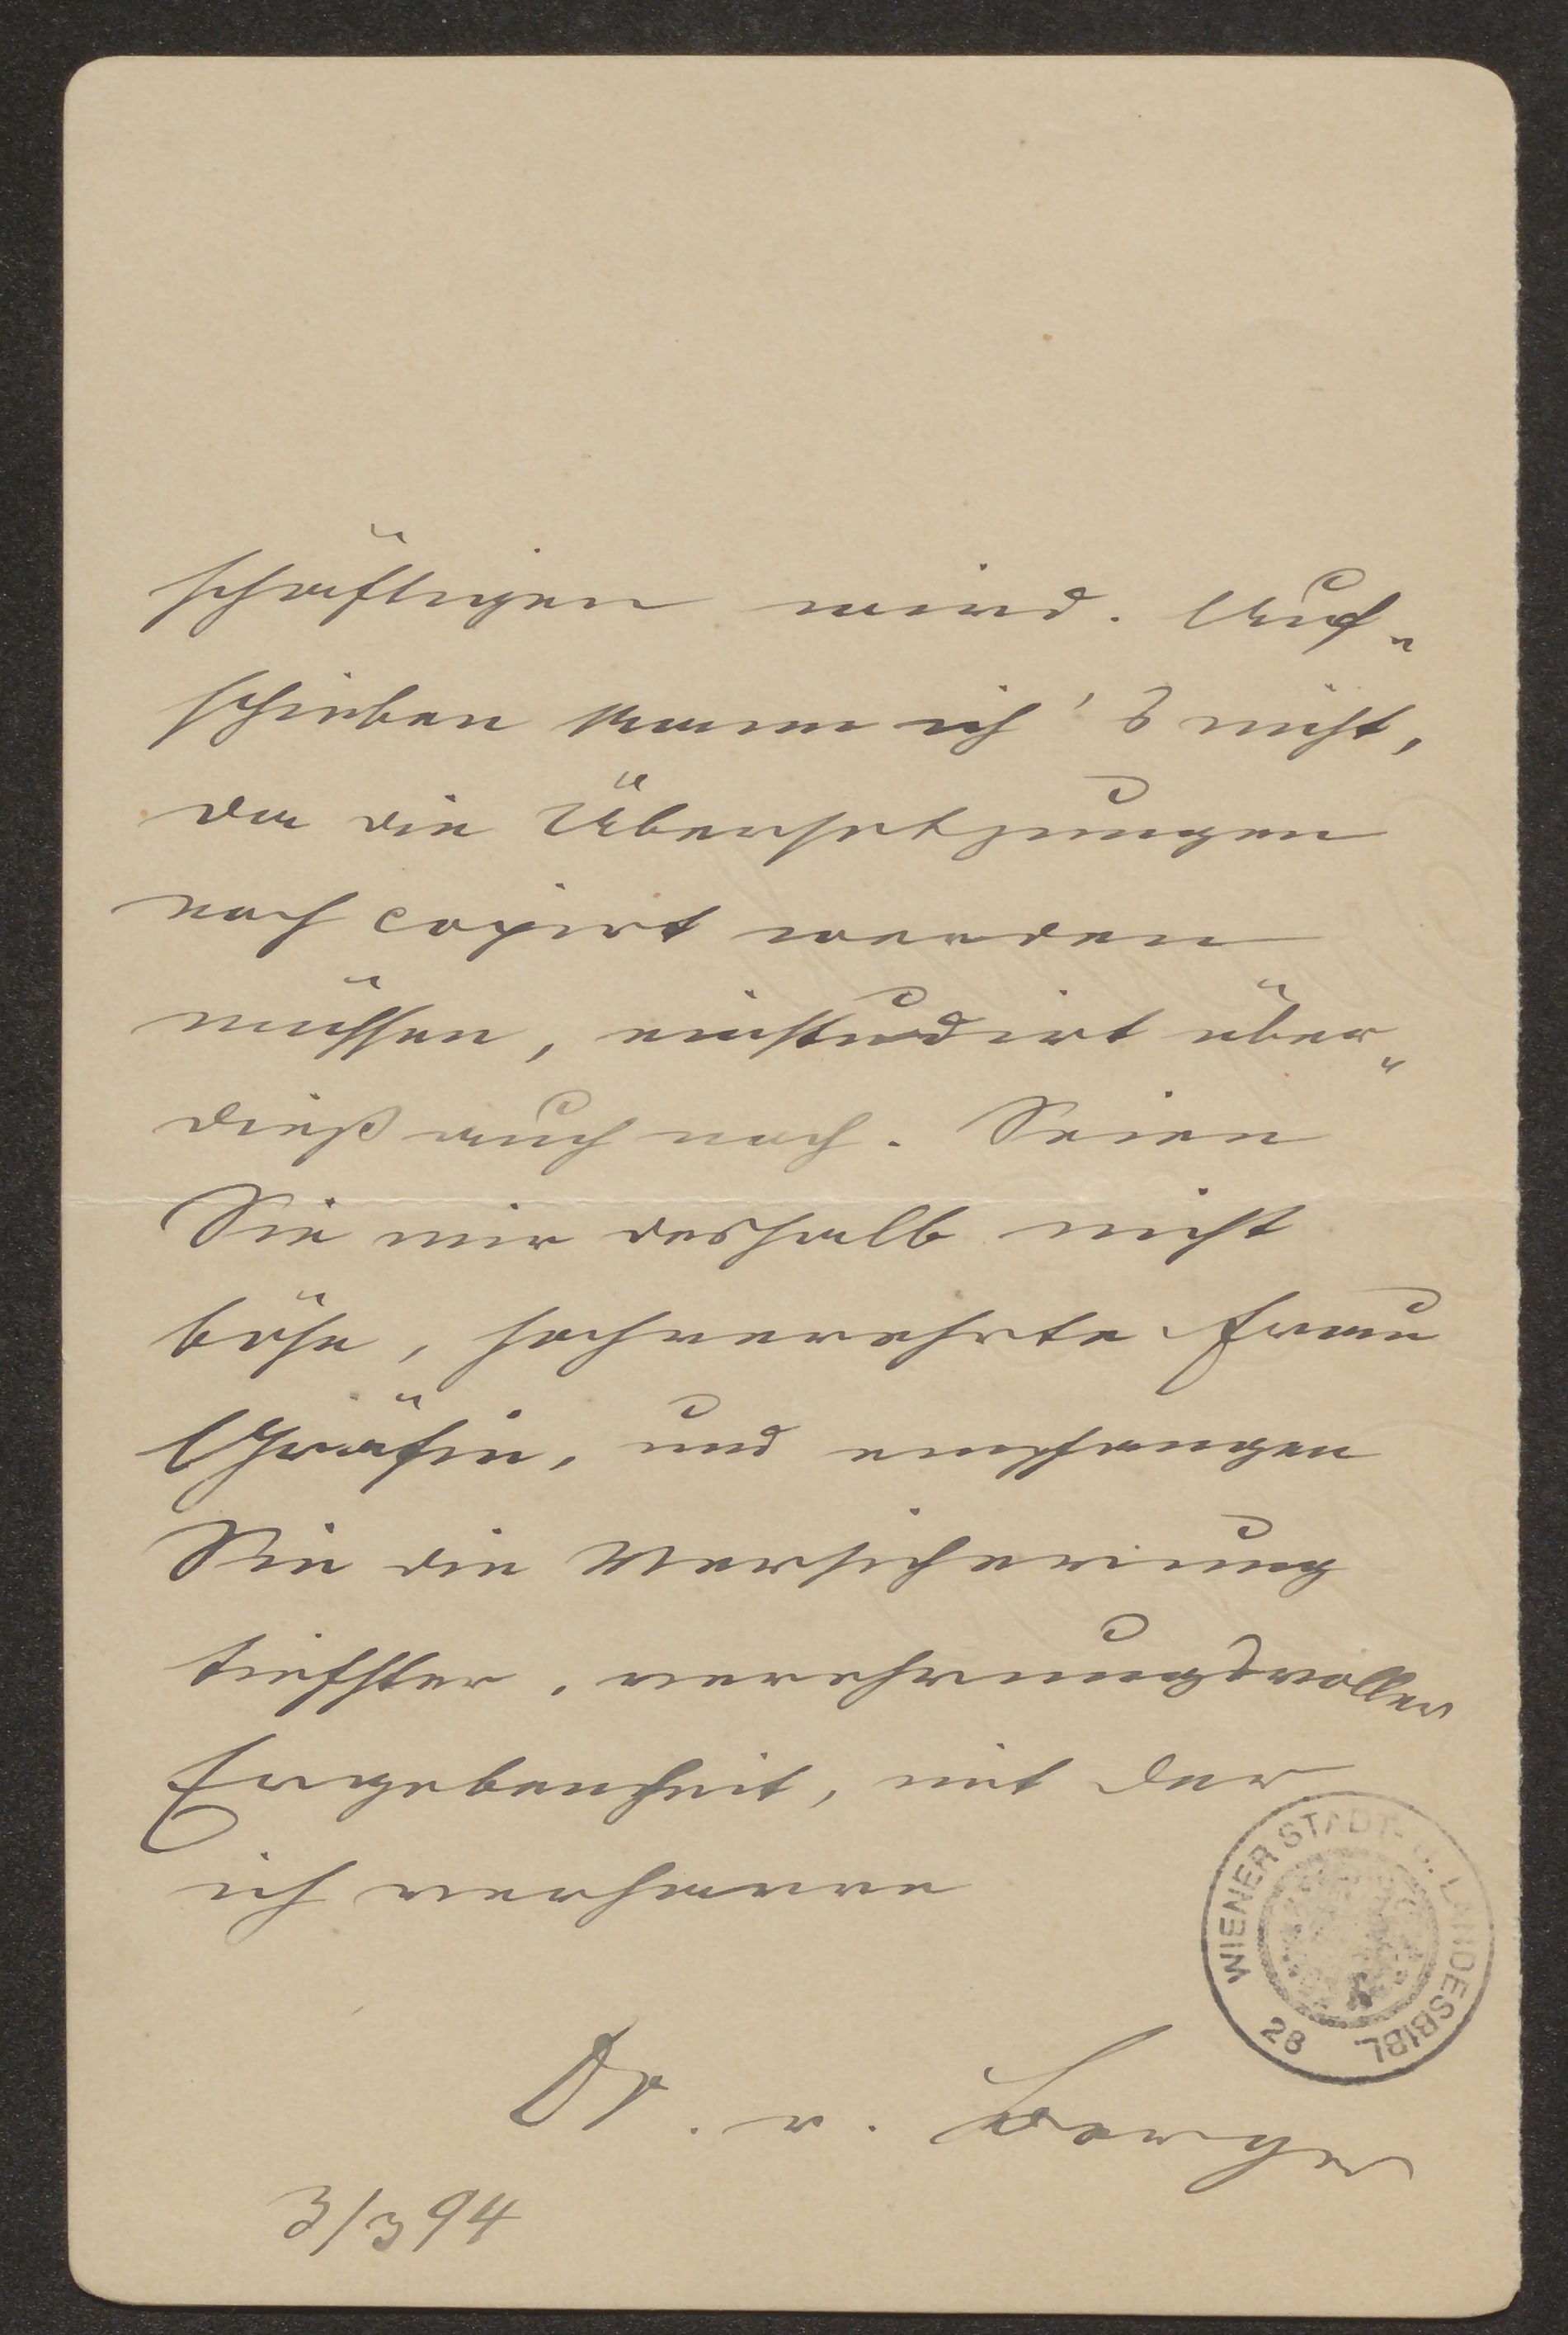 schäftigen wird. Auf-
schieben kann ich's nicht,
da die Übersetzungen
noch copirt werden
müssen, einstudirt über-
dieß auch noch. Seien
Sie mir deshalb nicht
böse, hochverehrte Frau
Gräfin, und empfangen
Sie die Versicherung
tiefster, verehrungsvoller
Ergebenheit, mit der
ich verharre
WIENER STADT- U. LANDESBIBL.
28
Dr. v. Berger
3/3 94